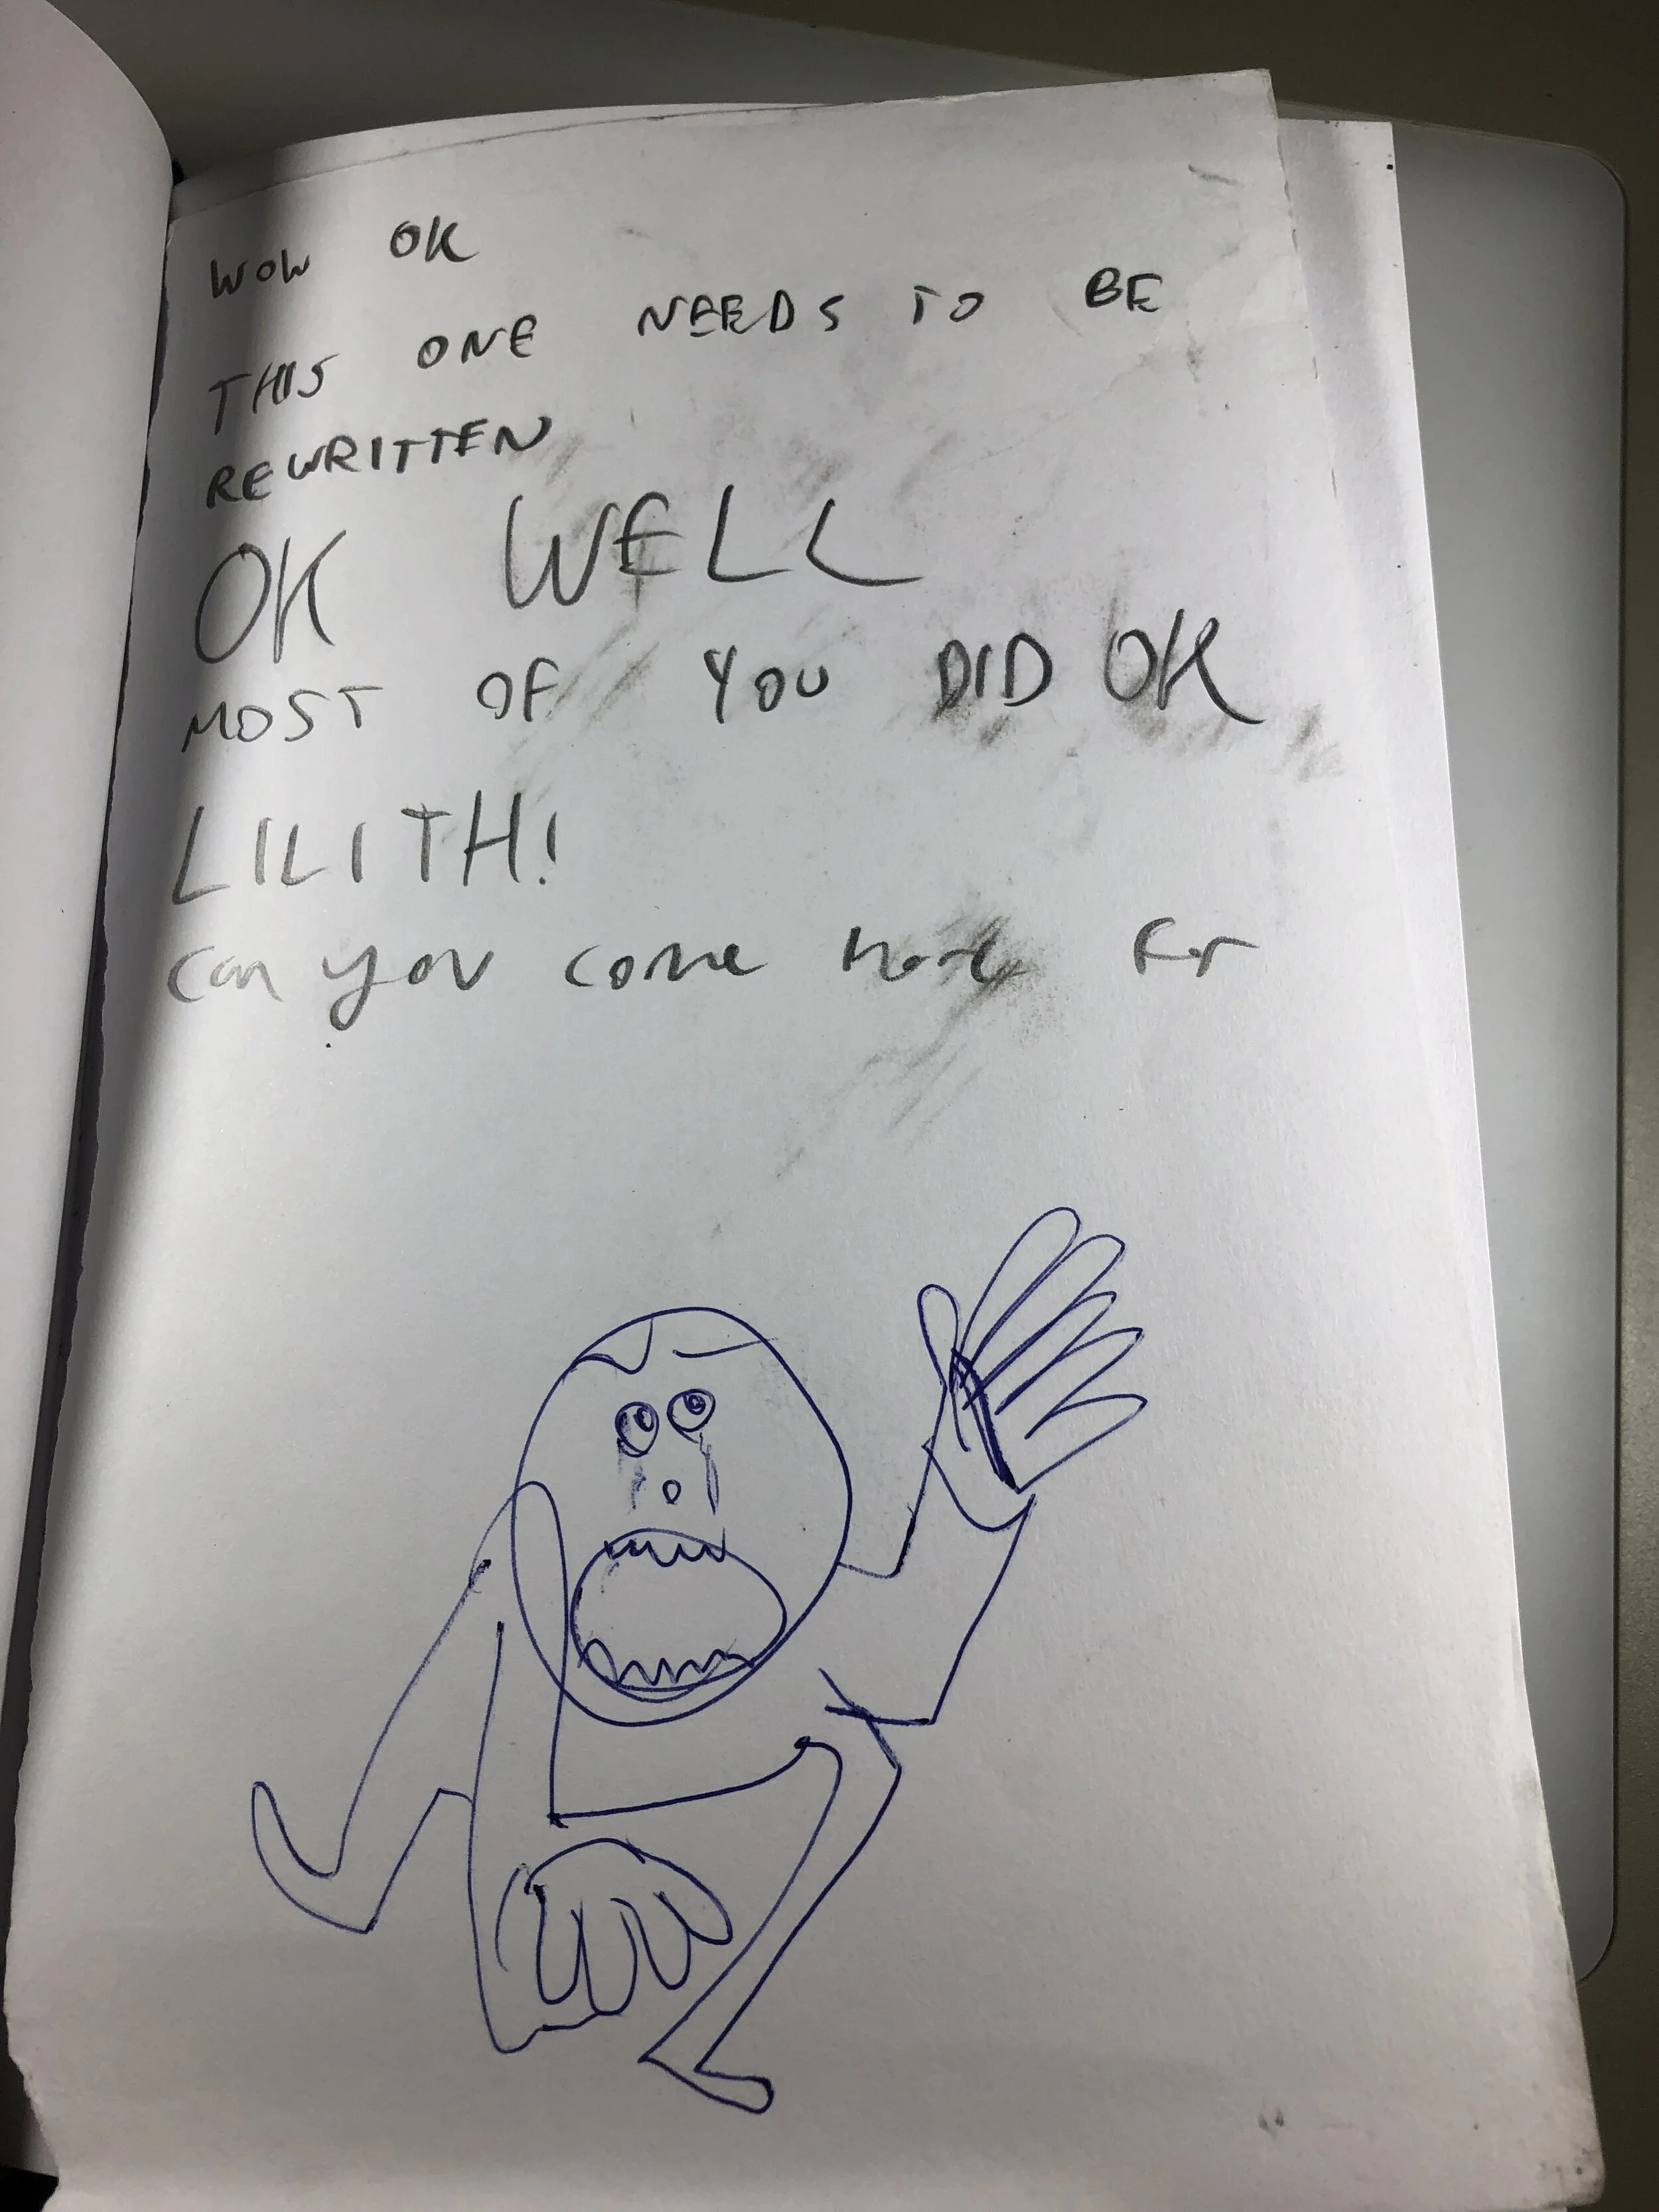 WOW OK
THIS ONE NEEDS TO BE
REWRITTEN
OK WELL
MOST OF YOU DID OK
LILITH!
can you come here for